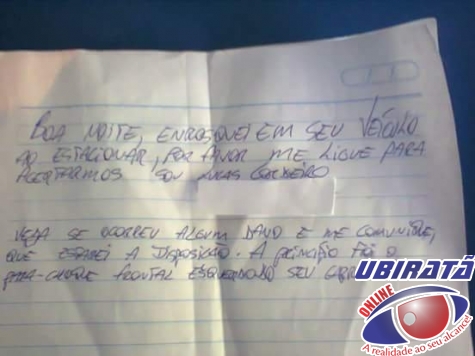 BOA NOITE, ENROSQUEI EM SEU VEÍCULO
AO ESTACIONAR, POR FAVOR ME LIGUE PARA
ACERTARMOS SOU LUCAS CORDEIRO
VEJA SE OCORREU ALGUM DANO E ME COMUNIQUE,
QUE ESTAREI A DISPOSIÇÃO. A PRINCIPIO FOI O
PARA-CHOQUE FRONTAL ESQUERDO DO SEU
UBIRATÃ
ONLINE
A realidade ao seu alcance!